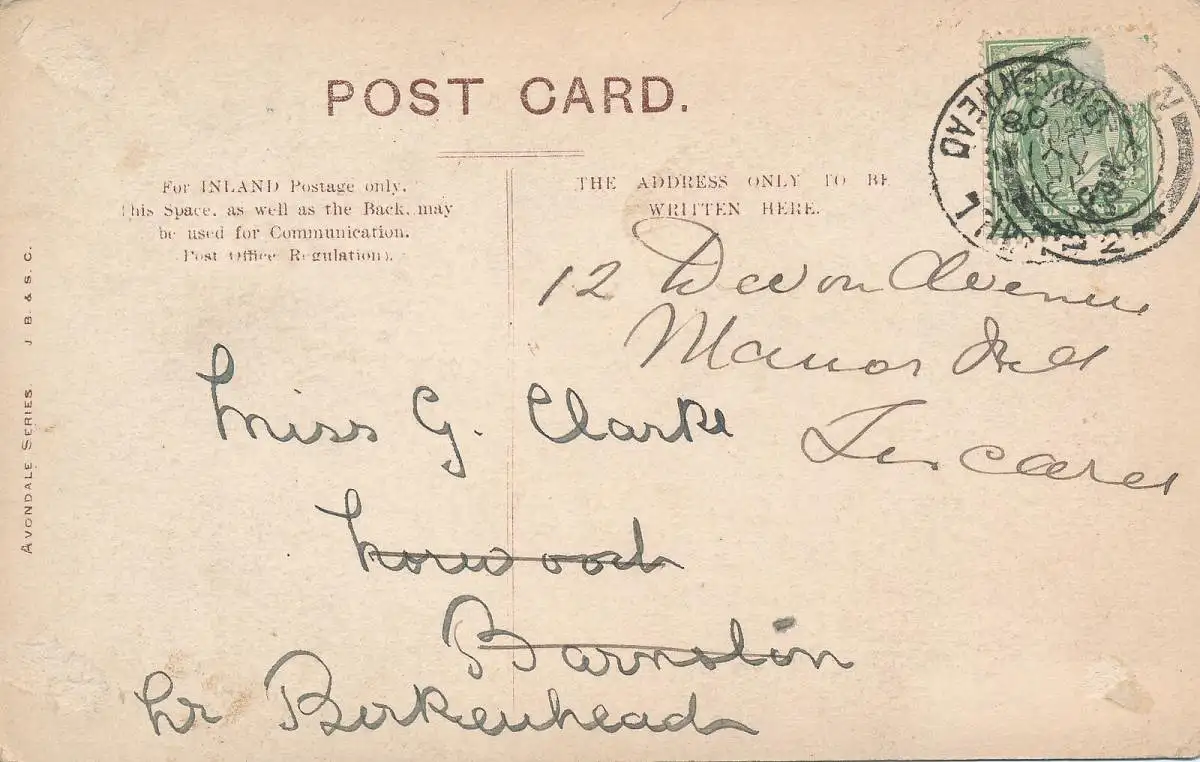 POST CARD.
For INLAND Postage only.
This Space, as well as the Back, may
be used for Communication.
Post Office Regulation).
THE ADDRESS ONLY TO BE
WRITTEN HERE.
BIRKENHEAD
08
12 Devon Avenue
Manor Hill
Liscard
Miss G. Clarke
Norwood
Barnston
Nr Birkenhead
AVONDALE SERIES. J B. & S. C.